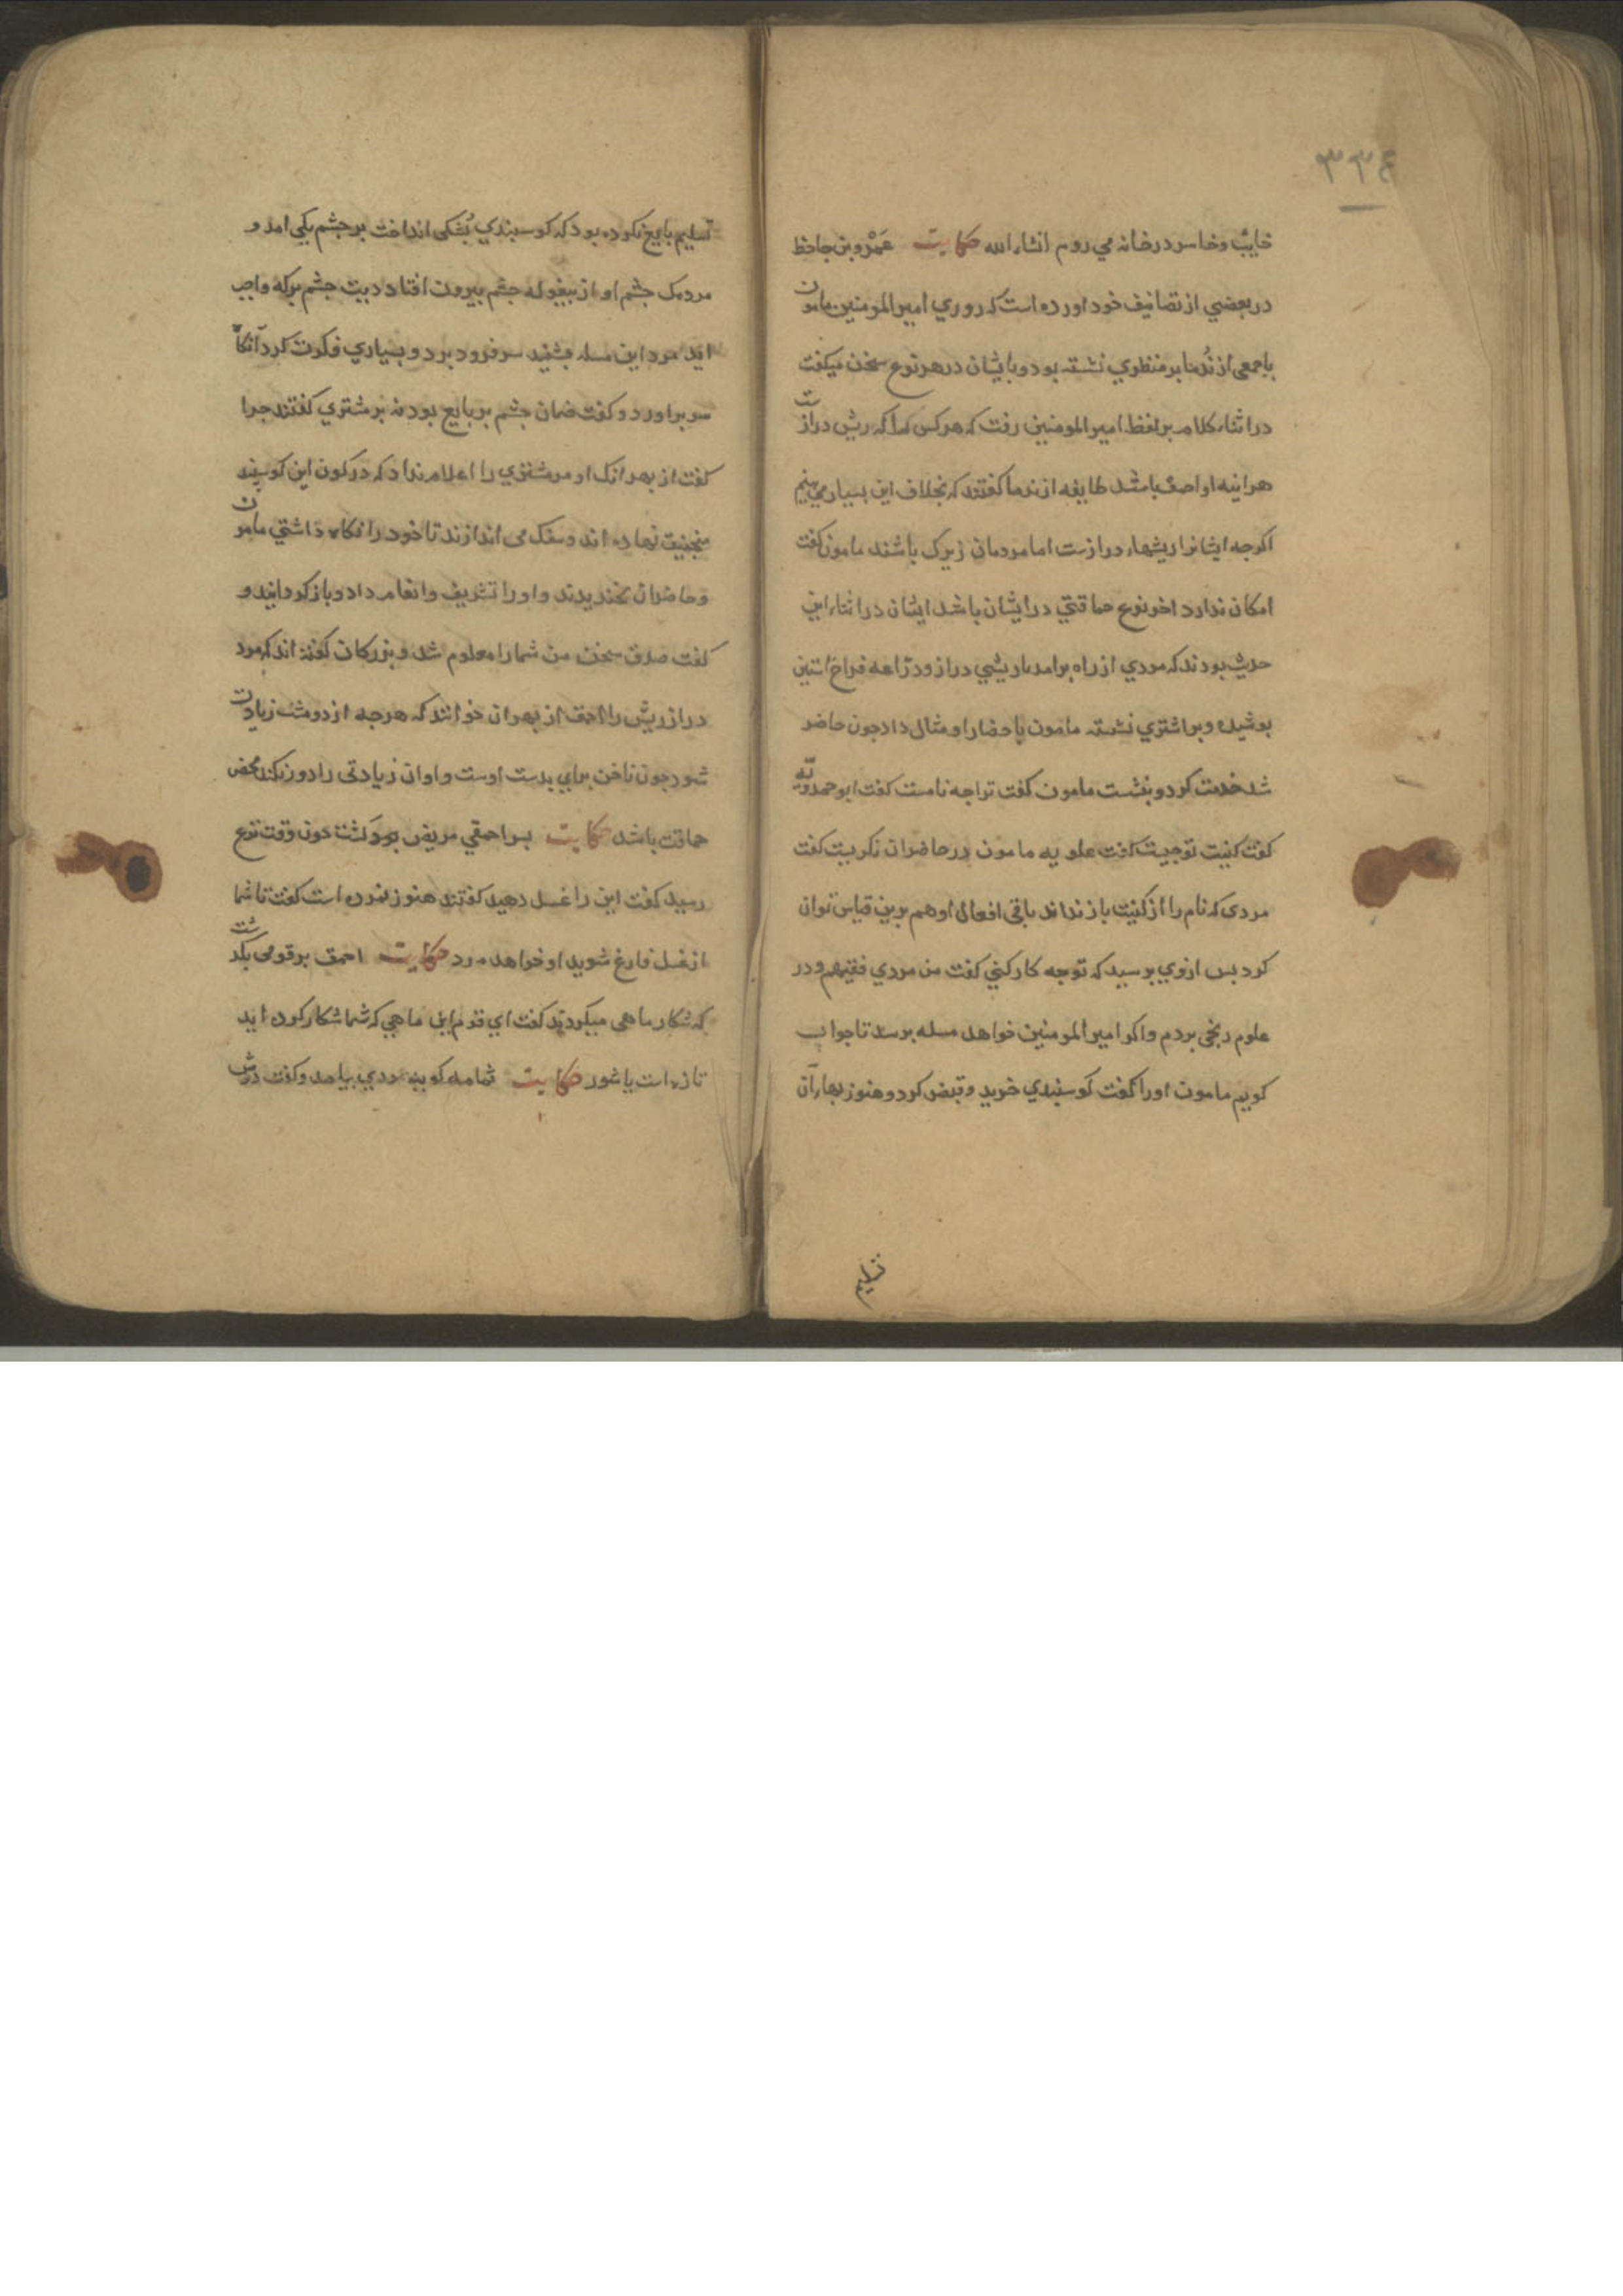 ٣٣٤
خایب و خاسر در خانه می روم انشاء الله حکایت عَمْرو بن جاحظ
در بعضی از تصانیف خود اورده است که روزی امیر المومنین مامون
با جمعی از نُدما بر منظری نشسته بود و با ایشان در هر نوع سخن میکفت
در اثناء کلام بر لفظ امیر المومنین رفت که هر کس را که ریش درازست
هراینه او احمق باشد طایفه از ندما کفتند که بخلاف این بسیار می بینیم
اکرجه ایشانرا ریشهاء درازست اما مردمان زیرک باشند مامون کفت
امکان ندارد اخر نوع حماقتی در ایشان باشد ایشان در اثناء این
حدیث بودند که مردی از راه برامد با ریشی دراز و درّاعه فراخ استین
بوشیده و بر اشتری نشسته مامون باحضار او مثال داد جون حاضر
شد خدمت کرد و بنشست مامون کفت ترا جه نامست کفت ابو حمدویه
کفت کنیت تو جیست کفت علویه مامون در حاضران نکریست کفت
مردی که نام را از کنیت باز نداند باقی افعال او هم برین قیاس توان
کرد بس از وی برسید که تو جه کار کنی کفت من مردی فقیهم و در
علوم رنجی بردم و اکر امیر المومنین خواهد مسله برسد تا جواب
کویم مامون او را کفت کوسبندی خرید و قبض کرد و هنوز بهاء آن
تسلیم
تسلیم بایع نکرده بود که کوسبندی بُشکی انداخت بر جشم یکی امد و
مردمک جشم او از بیغوله جشم بیرون افتاد دیت جشم بر که واجب
اید مرد این مسله بشنید سر فرود برد و بسیاری فکرت کرد آنکاه
سر براورد و کفت ضمان جشم بر بایع بود نه بر مشتری کفتند جرا
کفت از بهر انک او مر مشتری را اعلام نداد که در کون این کوسبند
منجنیق نهاده اند و سنک می اندازند تا خود را نکاه داشتی مامون
و حاضران بخندیدند و او را تشریف و انعام داد و باز کردانید و
کفت صدق سخن من شما را معلوم شد و بزرکان کفته اند که مرد
دراز ریش را احمق از بهر ان خوانند که هرجه از دو مشت زیادت
شود جون ناخن برای بدست اوست و او ان زیادتی را دور نکند محض
حماقت باشد حکایت بسر احمقی مریض بود کشت جون وقت نزع
رسید کفت این را غسل دهید کفتند هنوز نمرده است کفت تا شما
از غسل فارغ شوید او خواهد مرد حکایت احمق بر قومی بکذشت
که شکار ماهی میکردند کفت ای قوم این ماهی که شما شکار کرده اید
تازه است یا شور حکایت ثمامه کوید مردی بیامد و کفت